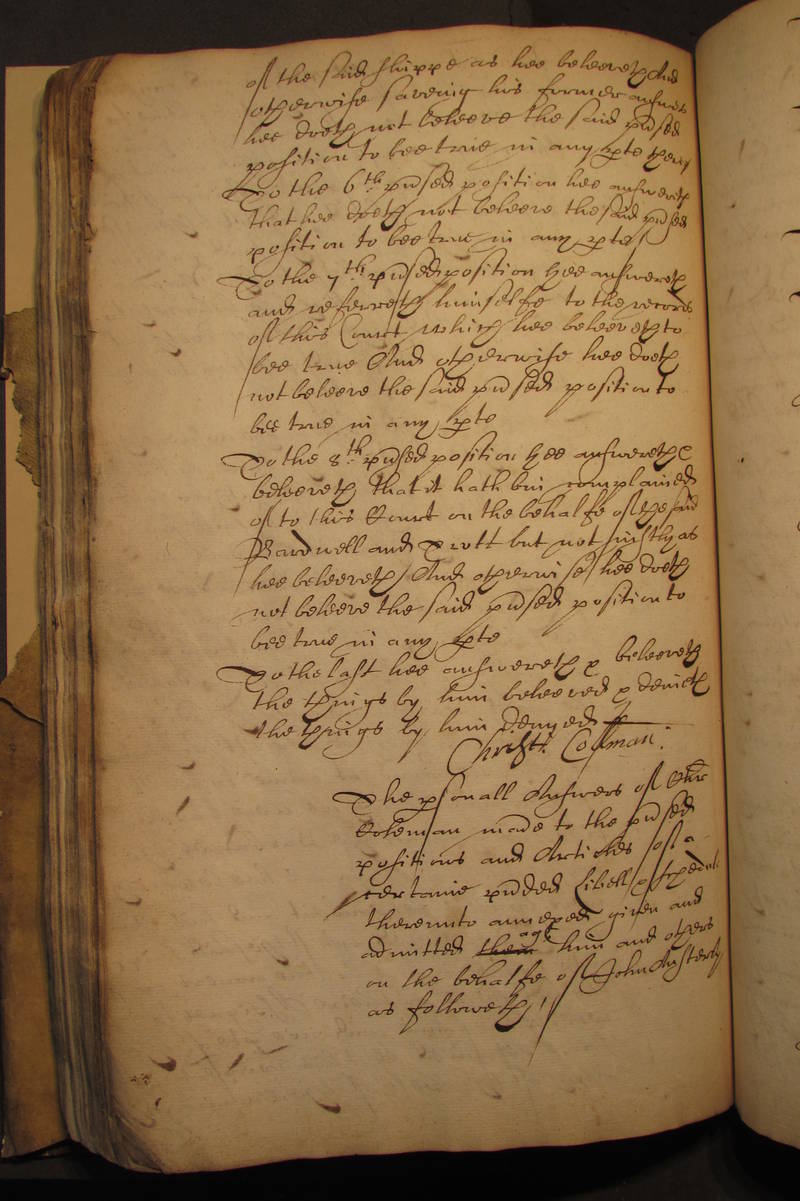 of the said shippe as hee beleeveth And
otherwise saveing his former answer
hee doeth not beleeve the said p'nsed
position to bee true in any pte thereof
To the 6th p'nsed position hee answereth
that hee doeth not beleeve the said p'nsed
position to bee true in any pte
To the 7th p'nsed position hee answereth
and referreth himselfe to the records
of this Court which hee beleeveth to
bee true And otherwise hee doeth
not beleeve the said p'nsed position to
bee true in any pte
To the 8th p'nsed position hee answereth &
beleeveth that it hath bin complained
of to this Court on the behalfe of the said
Bardwell and Trott but not justly as
hee beleeveth And otherwise hee doeth
not beleeve the said p'nsed position to
bee true in any pte
To the last hee answereth & beleeveth
the things by him beleeved & denieth
the things by him denyed
Christ: Colman:
The psonall Answers of Chr
Coleman made to the p'nsed
positions and Articles of a
certaine p'nded Libell & scedul
thereunto annexed given and
admitted them agt him and others
on the behalfe of John Austerly
as followeth